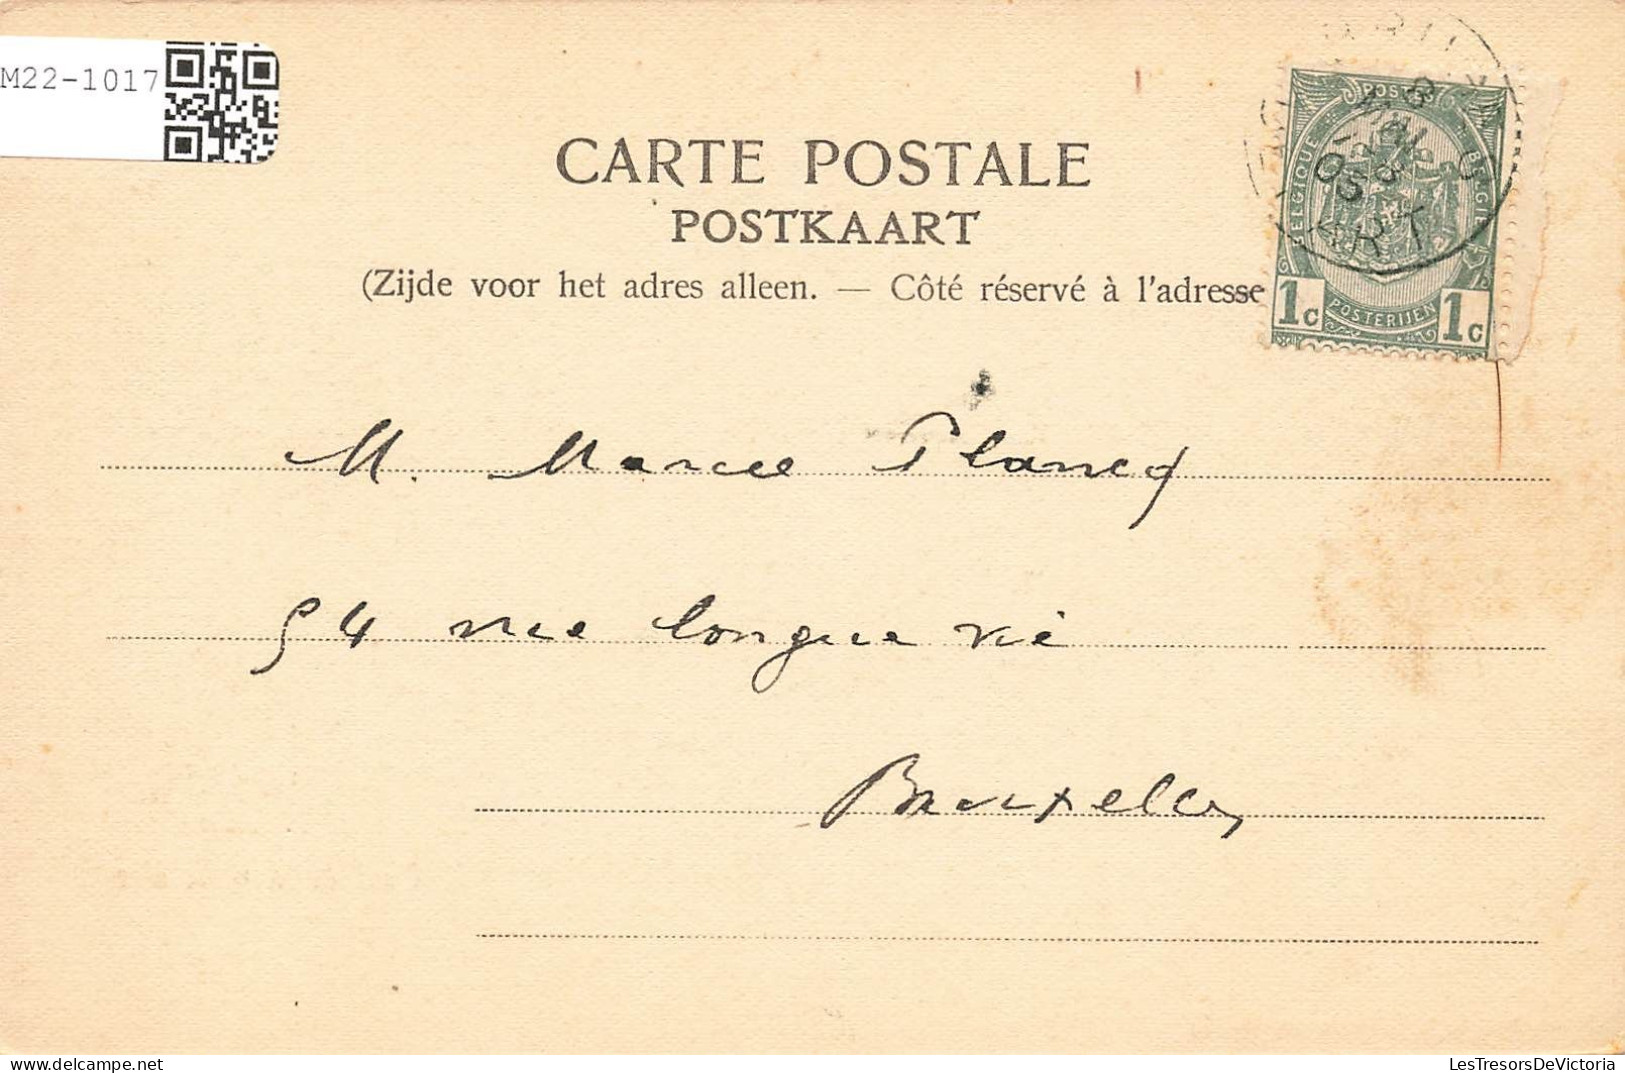 M22-1017
CARTE POSTALE
POSTKAART
(Zijde voor het adres alleen. — Côté réservé à l'adresse
POSTES
BELGIQUE
BELGIE
POSTERIJEN
1c 1c
M. Marcel Plancq
54 rue longue vie
Bruxelles
LesTresorsDeVictoria